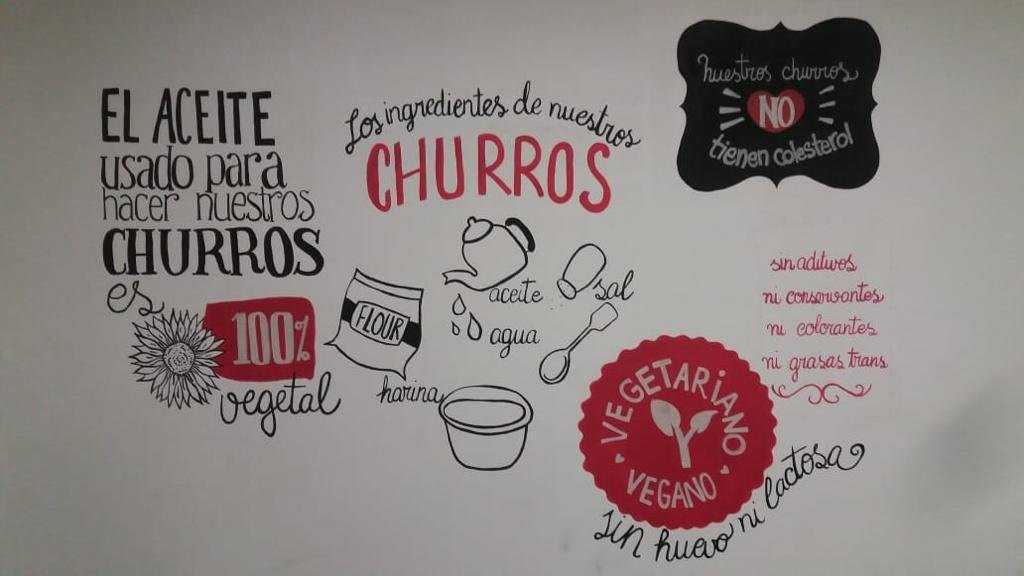 EL ACEITE
usado para
hacer nuestros
CHURROS
es
100%
vegetal
Los ingredientes de nuestros
CHURROS
aceite
sal
agua
FLOUR
harina
nuestros churros
NO
tienen colesterol
sin aditivos
ni conservantes
ni colorantes
ni grasas trans
VEGETARIANO
VEGANO
sin huevo ni lactosa